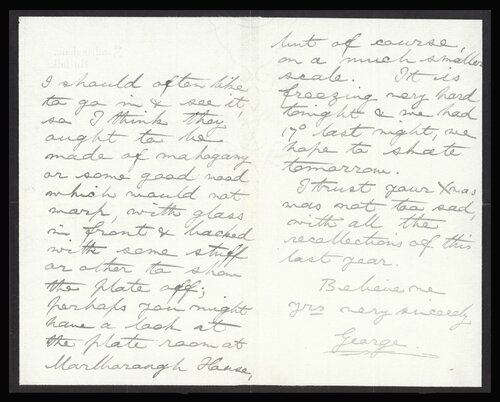 I should often like
to go in & see it,
so I think they
ought to be
made of mahogany
or some good wood
which would not
warp, with glass
in front & backed
with some stuff
or other to show
the plate off;
perhaps you might
have a look at
the plate room at
Marlborough House,
but of course,
on a much smaller
scale. It is
freezing very hard
tonight & we had
17° last night, we
hope to skate
tomorrow.
I trust your Xmas
was not too sad,
with all the
recollections of this
last year.
Believe me
yrs very sincerely
George.